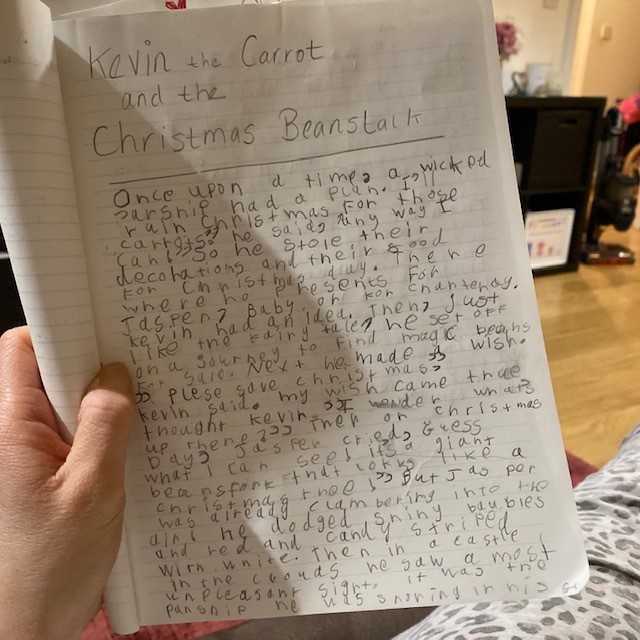 Kevin the Carrot
and the
Christmas Beanstalk
Once upon a time, a wicked
parsnip had a plan. "I,
ruin Christmas for those
carrots" he said "any way I
can" So he stole their
decorations and their food
for Christmas day. There
where no presents for
Jasper, Baby or for Chantenay.
Kevin had an idea. Then, Just
like the fairy tale, he set off
on a journey to find magic beans
for sale. Next he made a wish.
" Plese save christmas"
Kevin said. my wish came true
thought Kevin. "I wonder whats
up there?" Then on christmas
Day, Jasper cried, Guess
what I can see! its a giant
beanstork that looks like a
christmas tree!" But Jasper
was already clambering into the
air! he dodged shiny baubles
and red and candy striped
with white. Then in a castle
in the clouds he saw a most
unpleasant sight. it was the
parsnip he was snoring in his